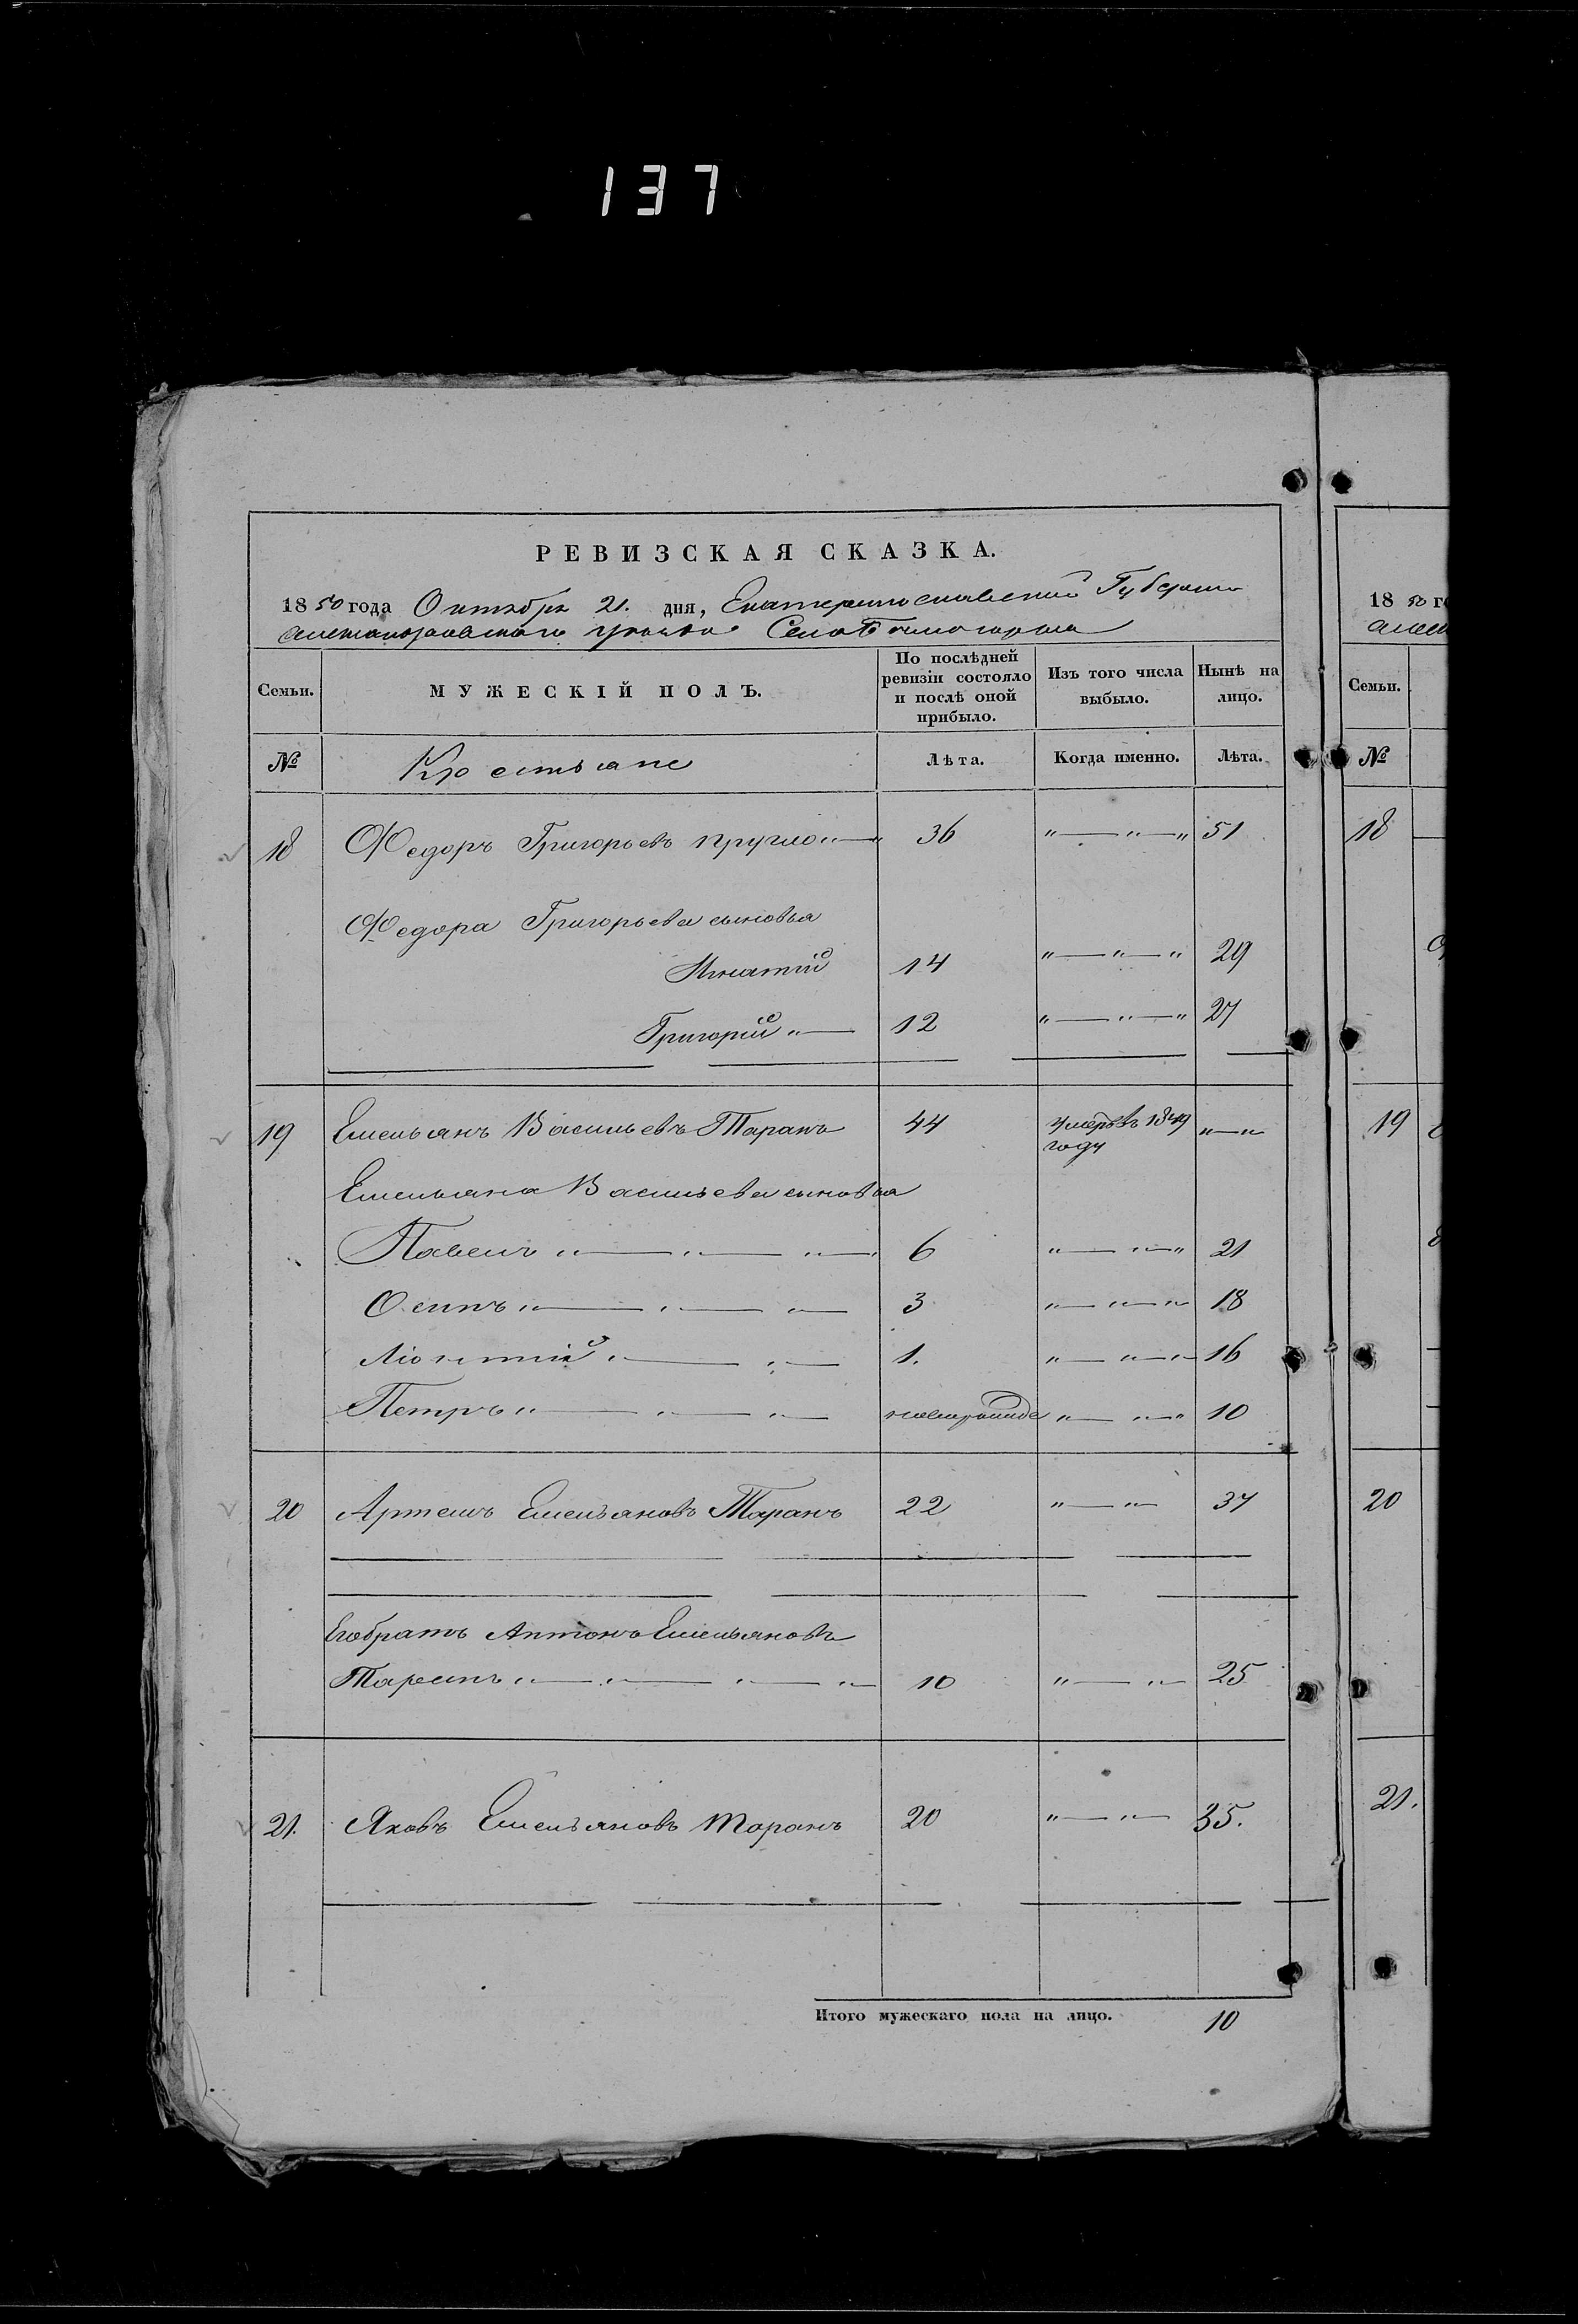 137
РЕВИЗСКАЯ СКАЗКА.
1850 года Октября 21. дня, Екатеринославской Губернии
Александровского уезда Села Белогорья
Семьи.
МУЖЕСКІЙ ПОЛЪ.
По послѣдней ревизіи состояло и послѣ оной прибыло.
Изъ того числа выбыло.
Нынѣ на лицо.
№ Крестьяне Лѣта. Когда именно. Лѣта.
18 Федоръ Григорьевъ Кругло 36 "—"—" 51
Федора Григорьева сыновья
Игнатій 14 "—"—" 29
Григорій "— 12 "—"—" 27
19 Емельянъ Васильевъ Таранъ 44 умеръ въ 1849 году "—"
Емельяна Васильева сыновья
Павелъ "—"—"— 6 "—"—" 21
Осипъ "—"—"— 3 "—"—" 18
Ліонтій "—"— 1. "—"—" 16
Петръ "—"—"— новорожде "—"—" 10
20 Артемъ Емельяновъ Таранъ 22 "—" 37
Его братъ Антонъ Емельяновъ
Таранъ "—"—"—"— 10 "—"— 25
21. Яковъ Емельяновъ Таранъ 20 "—"— 35.
Итого мужескаго пола на лицо. 10
18 50 г
Алек
Семьи.
№
18
19
20
21.